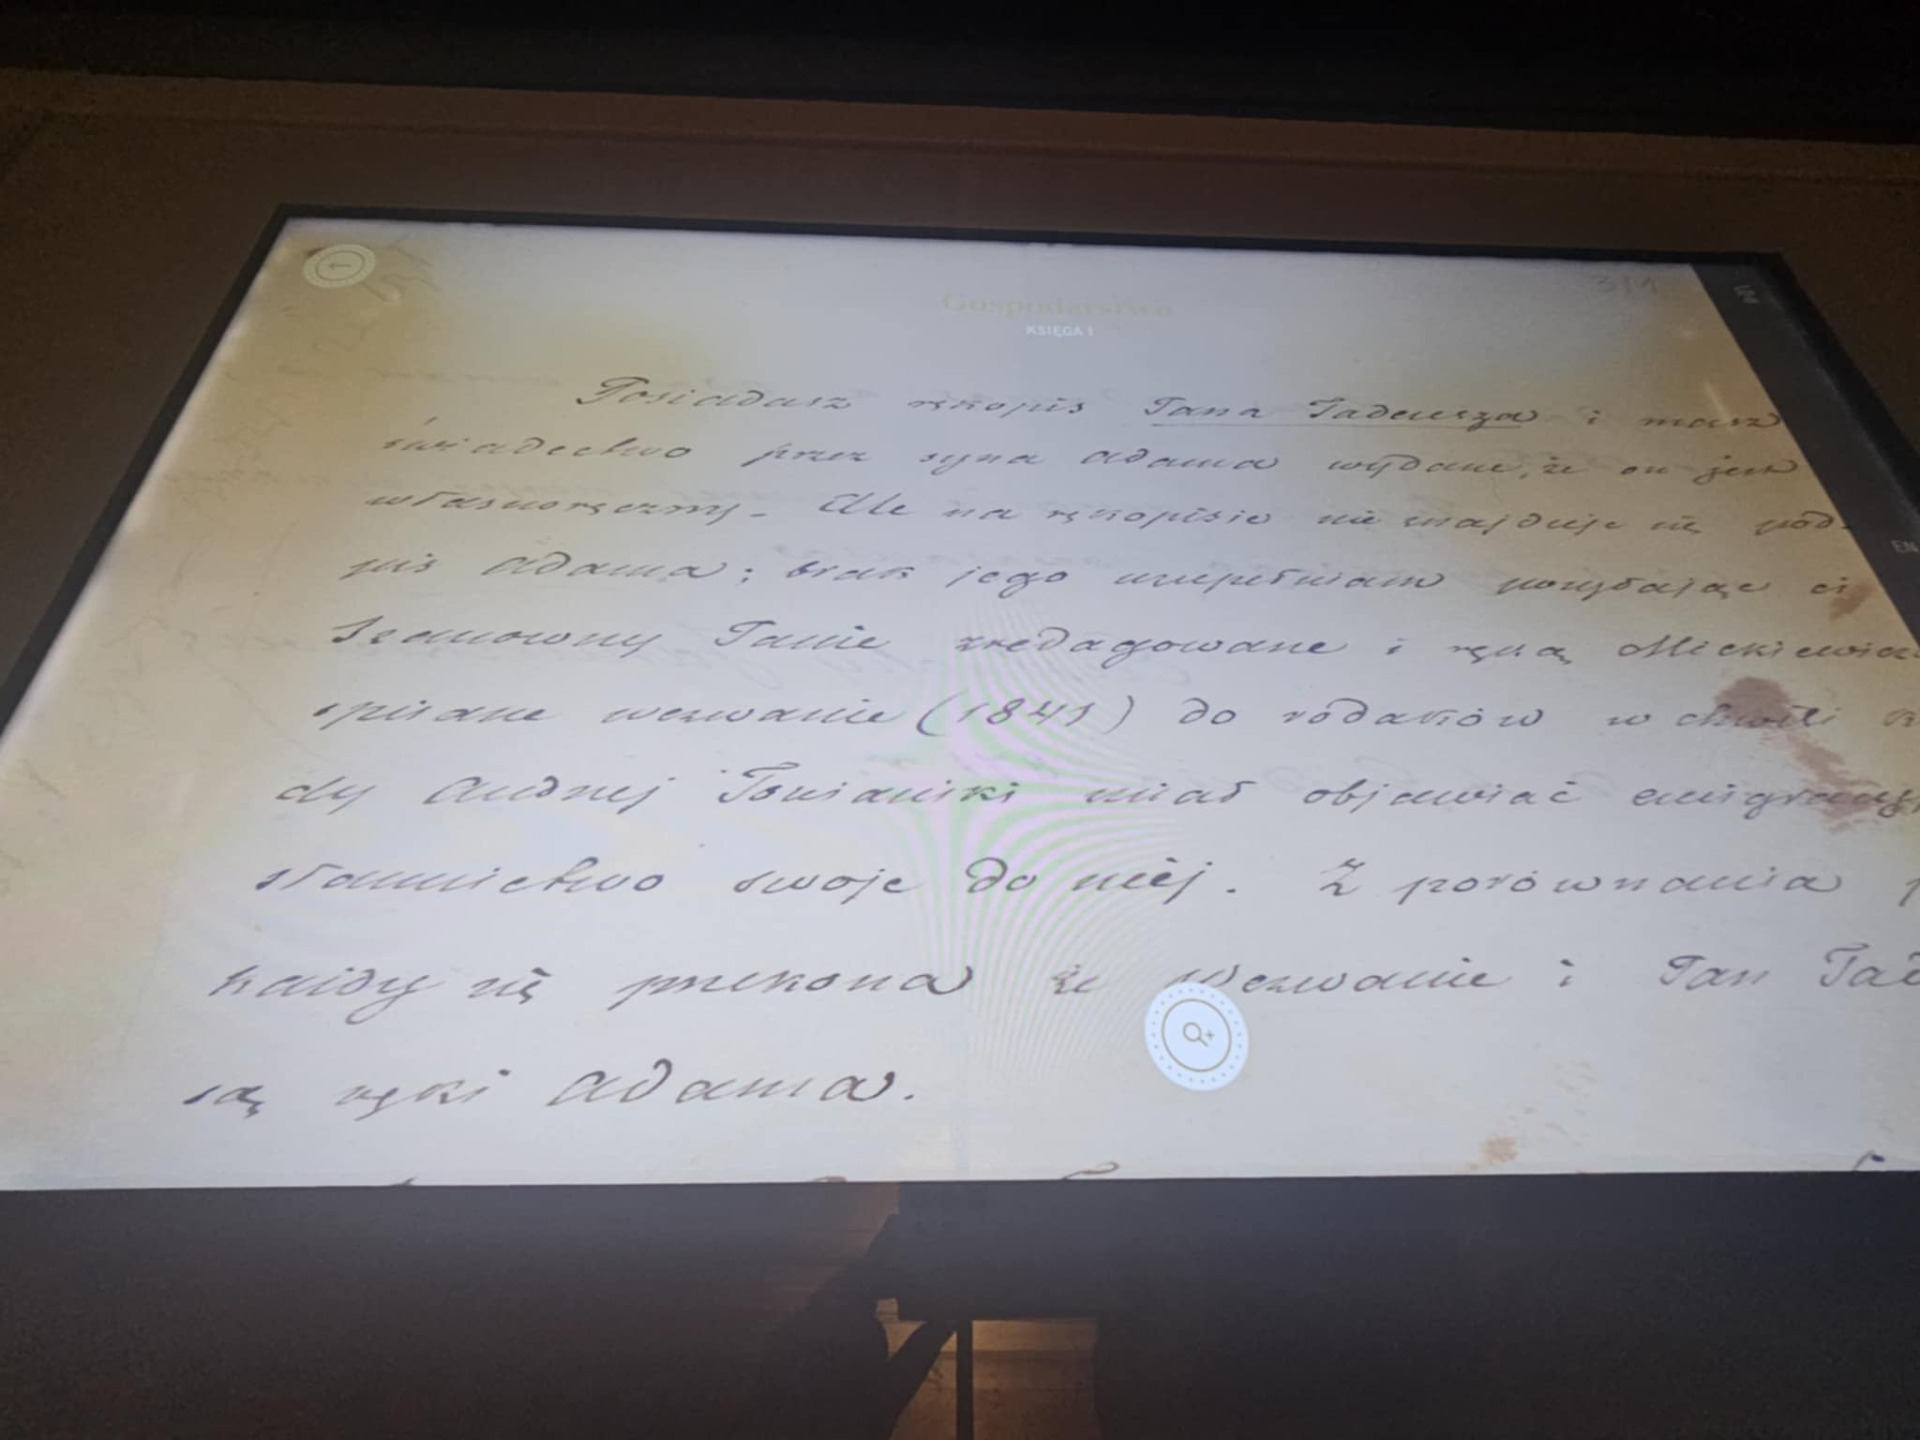 3/1
Gospodarstwo
KSIĘGA I
Posiadasz rękopis Pana Tadeusza i masz
świadectwo przez syna Adama wydane, że on jest
własnoręczny. Ale na rękopisie nie znajduje się pod-
pis Adama; brak jego uzupełniam posyłając ci
Szanowny Panie zredagowane i ręką Mickiewicza
spisane wezwanie (1841) do rodaków w chwili
dy Andrzej Towiański miał objawiać
słannictwo swoje do niéj. Z porównania
każdy się przekona że Wezwanie i Pan Tad
są ręki Adama.
EN